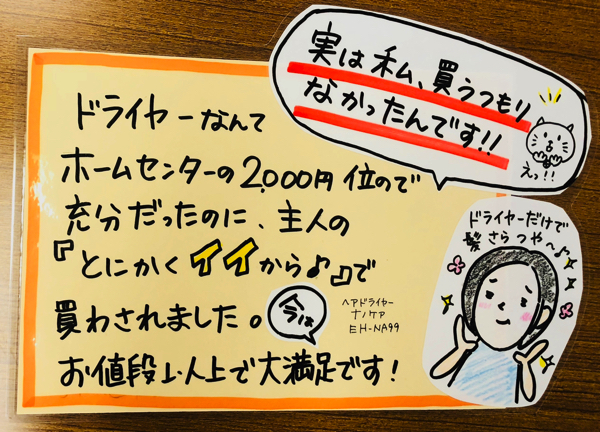 実は私、買うつもり
なかったんです!!
えっ!!
ドライヤーなんて
ホームセンターの2,000円位ので
充分だったのに、主人の
『とにかくイイから♪』で
買わされました。
今は
ヘアドライヤー
ナノケア
EH-NA99
お値段以上で大満足です!
ドライヤーだけで
髪さらつや〜♪